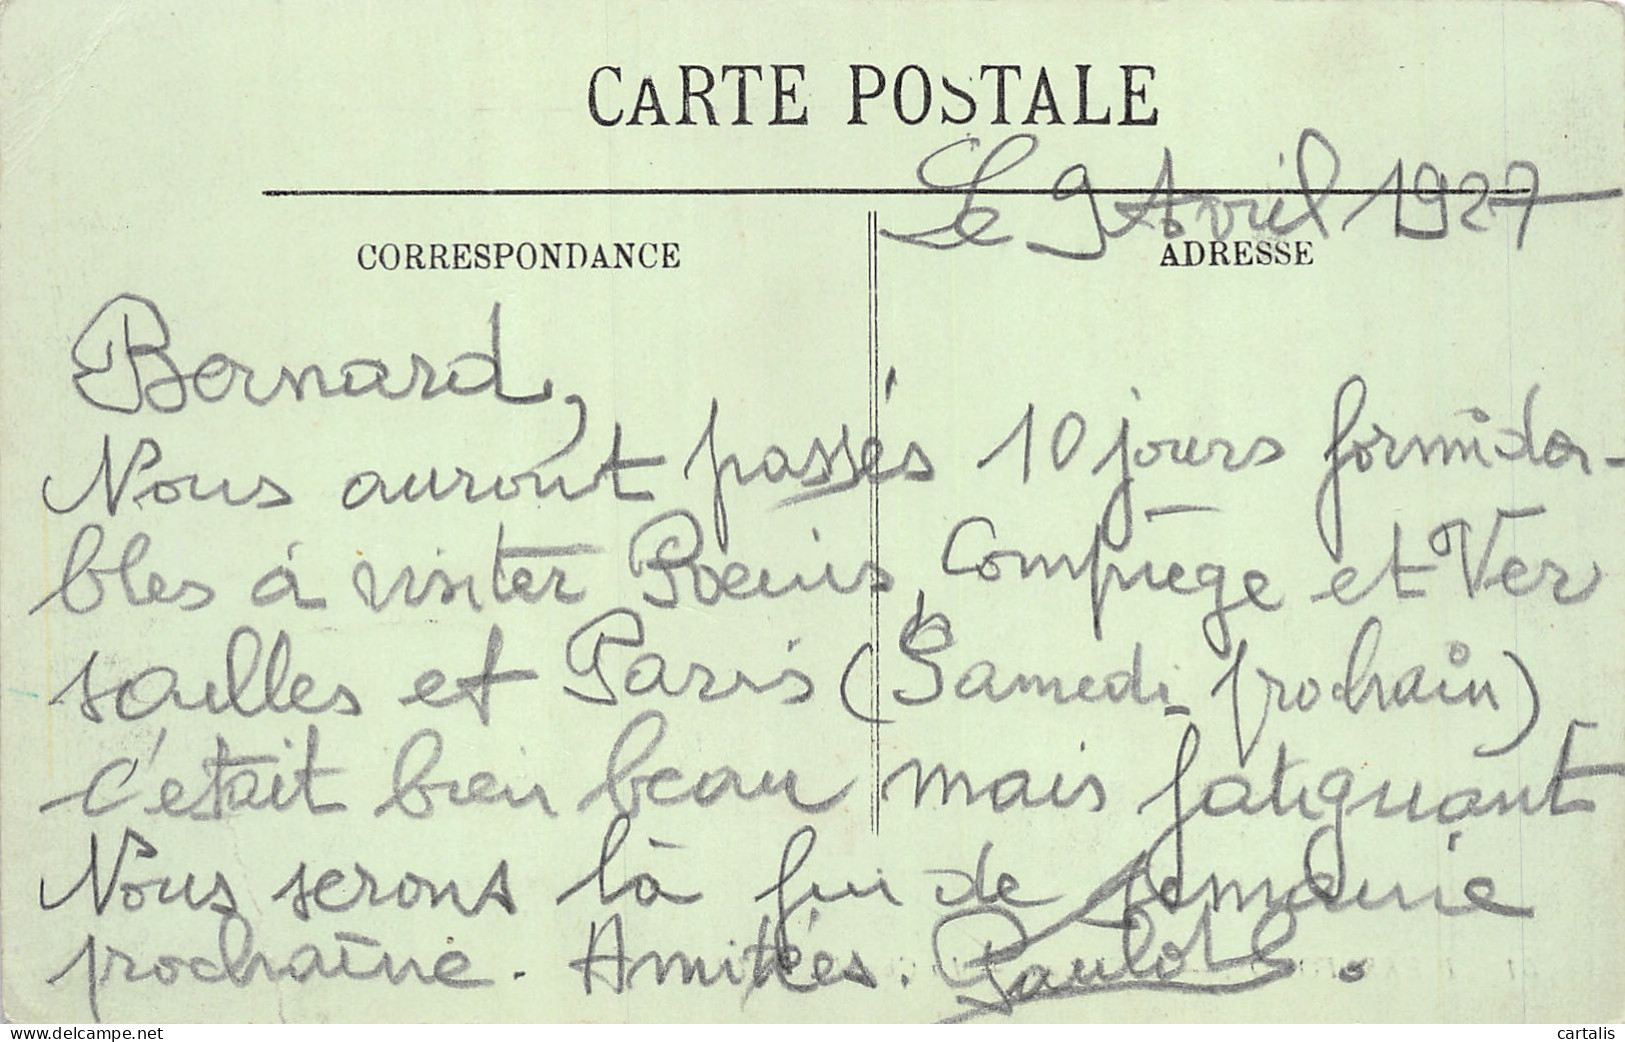 CARTE POSTALE
Le 9 Avril 1927
CORRESPONDANCE
ADRESSE
Bernard,
Nous auront passés 10 jours formida-
bles à visiter Reims, Compiège et Ver
sailles et Paris (Samedi prochain)
c'etait bien beau mais fatiguant
Nous serons là fin de semaine
prochaine. Amitiés. Paulot.
cartalis